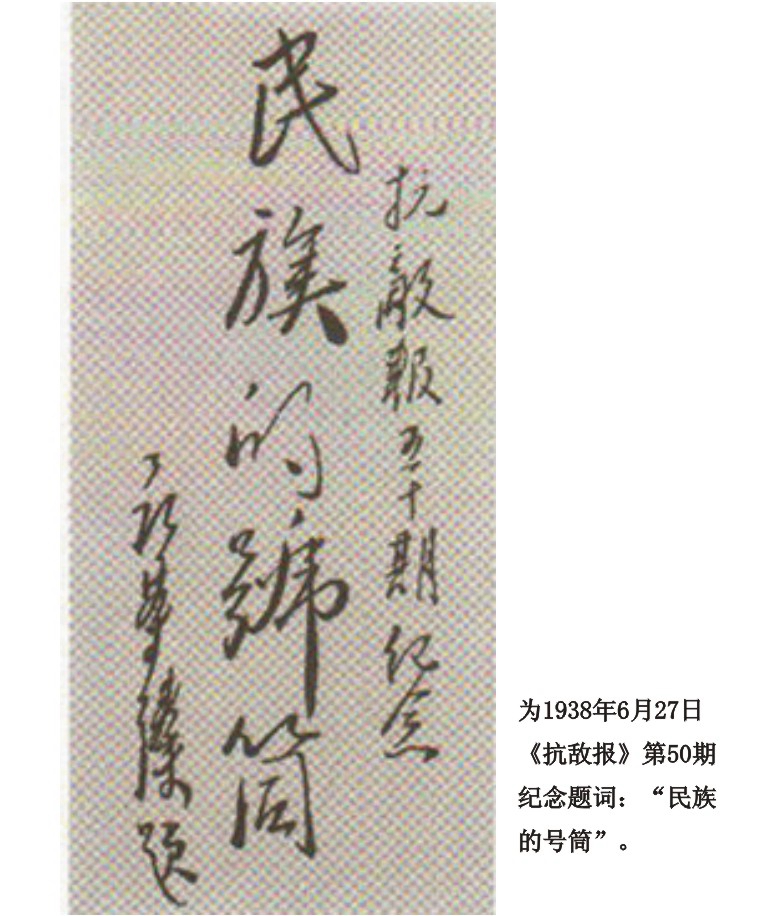 抗敵報五十期纪念
民族的號筒
題
为1938年6月27日
《抗敌报》第50期
纪念题词：“民族
的号筒”。